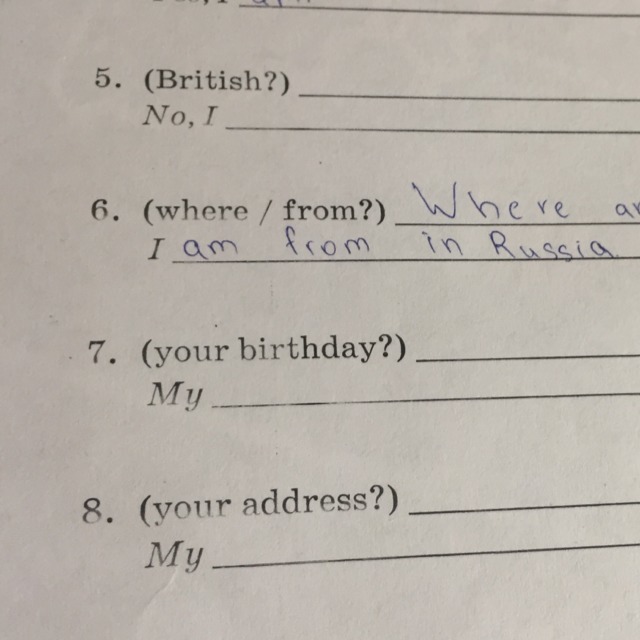 5. (British?)
No, I
6. (where / from?) Where
I am from in Russia
7. (your birthday?)
My
8. (your address?)
My